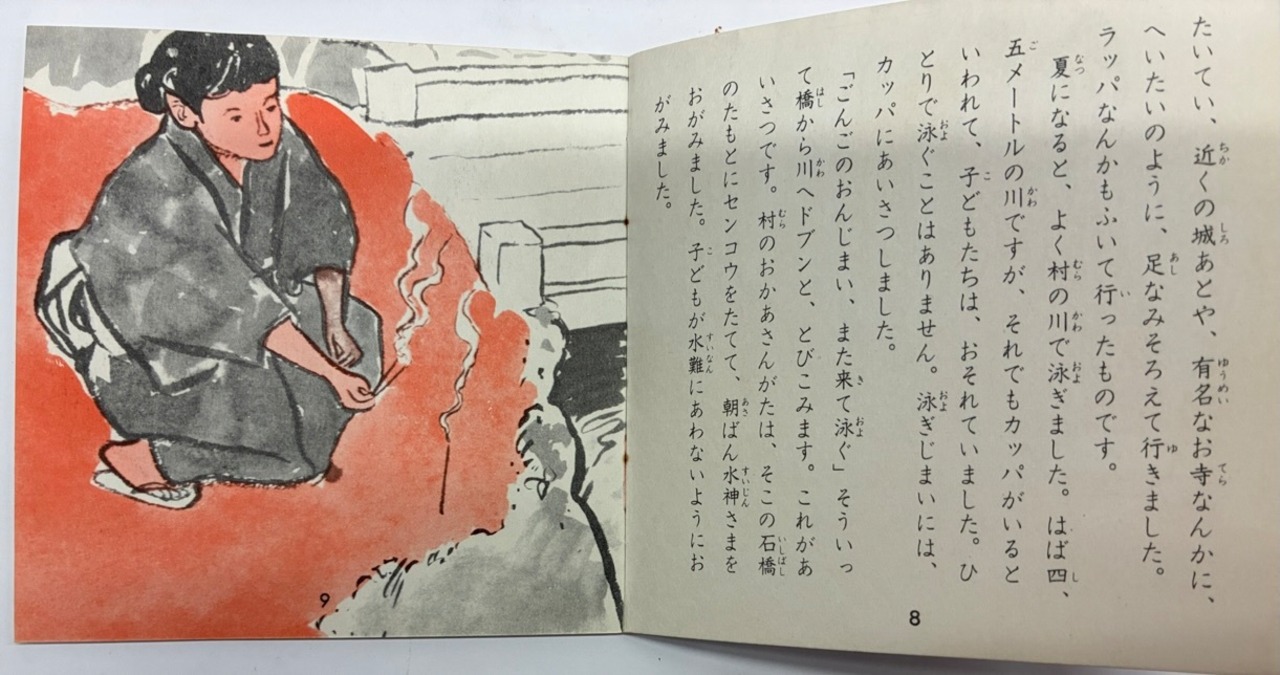 たいてい、近くの城あとや、有名なお寺なんかに、
へいたいのように、足なみそろえて行きました。
ラッパなんかもふいて行ったものです。
夏になると、よく村の川で泳ぎました。はば四、
五メートルの川ですが、それでもカッパがいると
いわれて、子どもたちは、おそれていました。ひ
とりで泳ぐことはありません。泳ぎじまいには、
カッパにあいさつしました。
「ごんごのおんじまい、また来て泳ぐ」そういっ
て橋から川へドブンと、とびこみます。これがあ
いさつです。村のおかあさんがたは、そこの石橋
のたもとにセンコウをたてて、朝ばん水神さまを
おがみました。子どもが水難にあわないようにお
がみました。
8
9